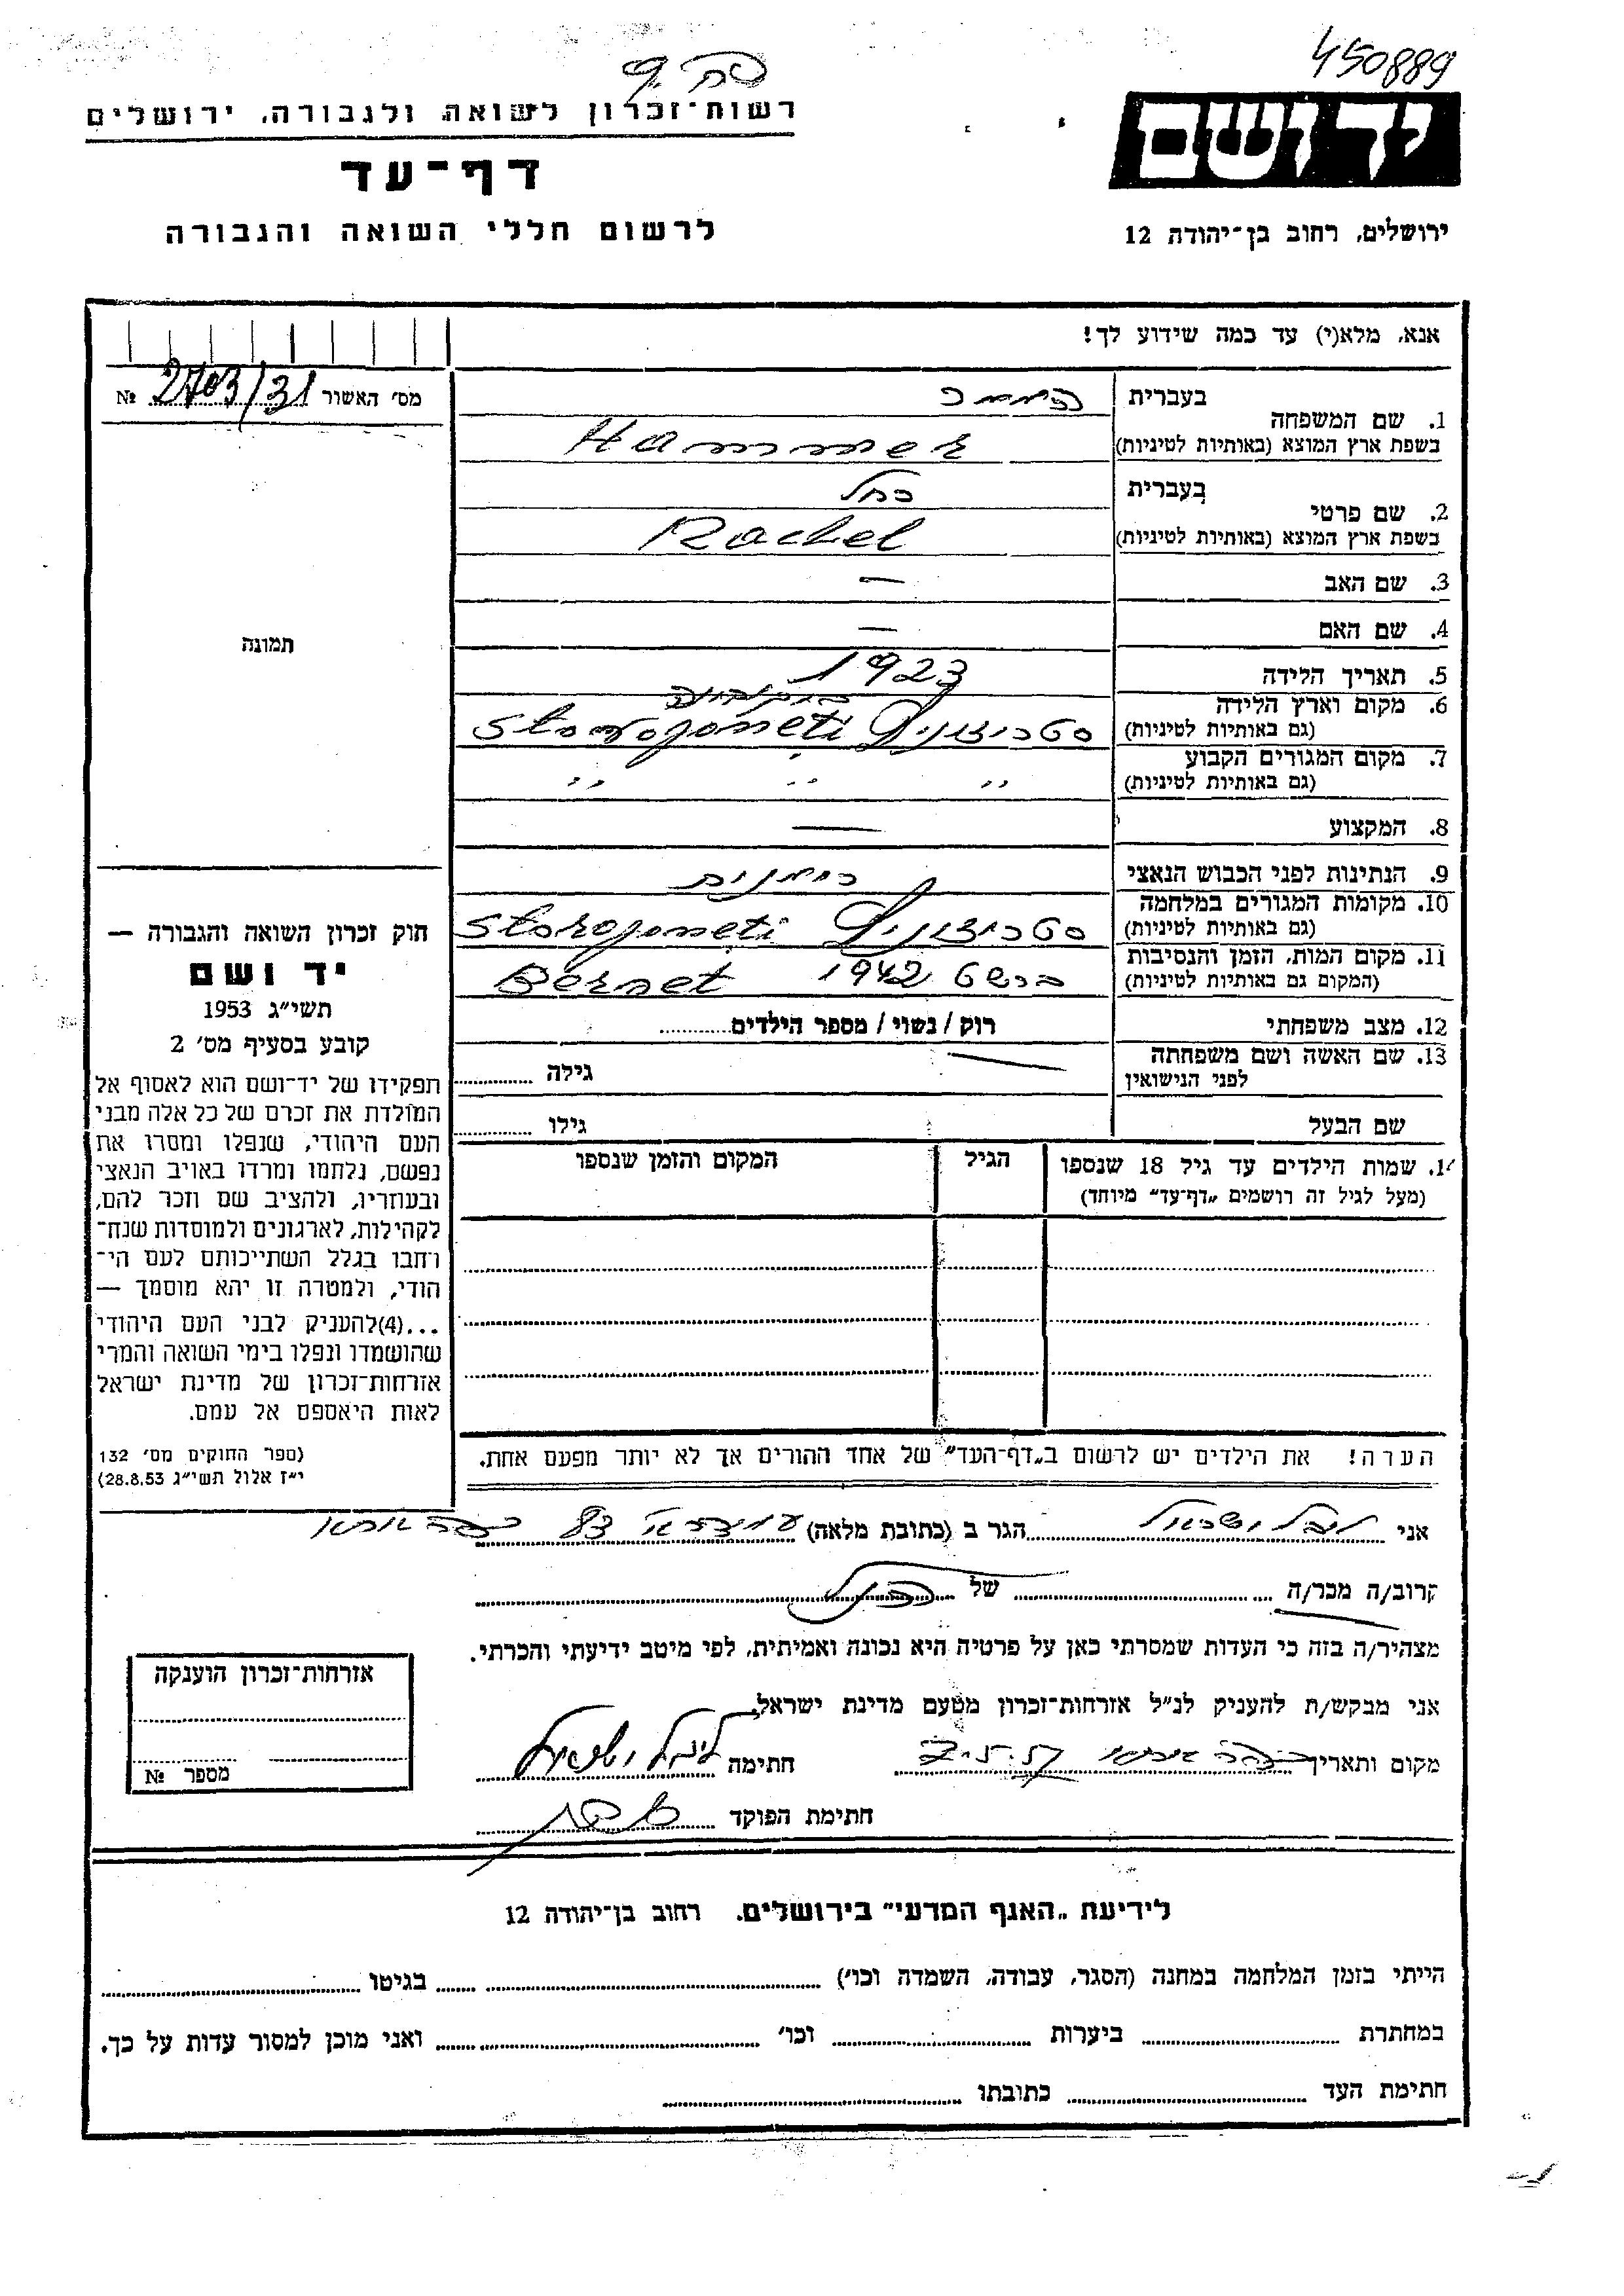 450889
יד ושם
ירושלים, רחוב בן־יהודה 12
רשות־זכרון לשואה ולגבורה, ירושלים
דף־עד
לרשום חללי השואה והגבורה
אנא, מלא(י) עד כמה שידוע לך!
מס׳ האשור 2703/31 №
תמונה
1. שם המשפחה
בעברית האמר
בשפת ארץ המוצא (באותיות לטיניות) Hammer
2. שם פרטי
בעברית רחל
בשפת ארץ המוצא (באותיות לטיניות) Rachel
3. שם האב —
4. שם האם —
5. תאריך הלידה 1923
6. מקום וארץ הלידה
(גם באותיות לטיניות) Storojoneti
7. מקום המגורים הקבוע
(גם באותיות לטיניות) ״ ״ ״
8. המקצוע —
9. הנתינות לפני הכבוש הנאצי
10. מקומות המגורים במלחמה
(גם באותיות לטיניות) Storojoneti
11. מקום המות, הזמן והנסיבות
(המקום גם באותיות לטיניות) ברשט 1942 Berset
12. מצב משפחתי רוק / נשוי / מספר הילדים
13. שם האשה ושם משפחתה
לפני הנישואין — גילה
שם הבעל גילו
14. שמות הילדים עד גיל 18 שנספו
(מעל לגיל זה רושמים „דף־עד״ מיוחד)
הגיל
המקום והזמן שנספו
הערה! את הילדים יש לרשום ב„דף־העד״ של אחד ההורים אך לא יותר מפעם אחת.
חוק זכרון השואה והגבורה —
יד ושם
תשי״ג 1953
קובע בסעיף מס׳ 2
תפקידו של יד־ושם הוא לאסוף אל
המולדת את זכרם של כל אלה מבני
העם היהודי, שנפלו ומסרו את
נפשם, נלחמו ומרדו באויב הנאצי
ובעוזריו, ולהציב שם וזכר להם,
לקהילות, לארגונים ולמוסדות שנח־
רחבו בגלל השתייכותם לעם הי־
הודי, ולמטרה זו יהא מוסמך —
...(4)להעניק לבני העם היהודי
שהושמדו ונפלו בימי השואה והמרי
אזרחות־זכרון של מדינת ישראל
לאות היאספם אל עמם.
(ספר החוקים מס׳ 132
י״ז אלול תשי״ג 28.8.53)
אני ישראל הגר ב (כתובת מלאה) 83
קרוב/ה מכר/ה של
מצהיר/ה בזה כי העדות שמסרתי כאן על פרטיה היא נכונה ואמיתית, לפי מיטב ידיעתי והכרתי.
אני מבקש/ת להעניק לנ״ל אזרחות־זכרון מטעם מדינת ישראל.
מקום ותאריך חתימה
חתימת הפוקד
אזרחות־זכרון הוענקה
מספר №
לידיעת „האגף המדעי״ בירושלים, רחוב בן־יהודה 12
הייתי בזמן המלחמה במחנה (הסגר, עבודה, השמדה וכו׳) בגיטו
במחתרת ביערות וכו׳ ואני מוכן למסור עדות על כך.
חתימת העד כתובתו